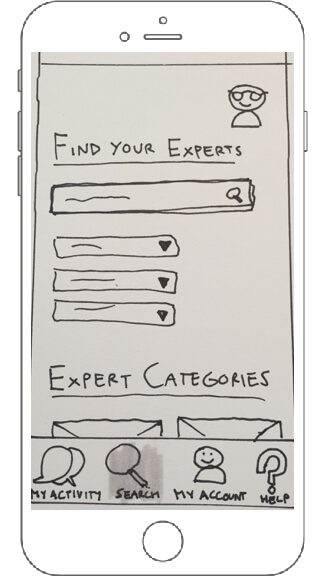 FIND YOUR EXPERTS
EXPERT CATEGORIES
MY ACTIVITY SEARCH MY ACCOUNT HELP